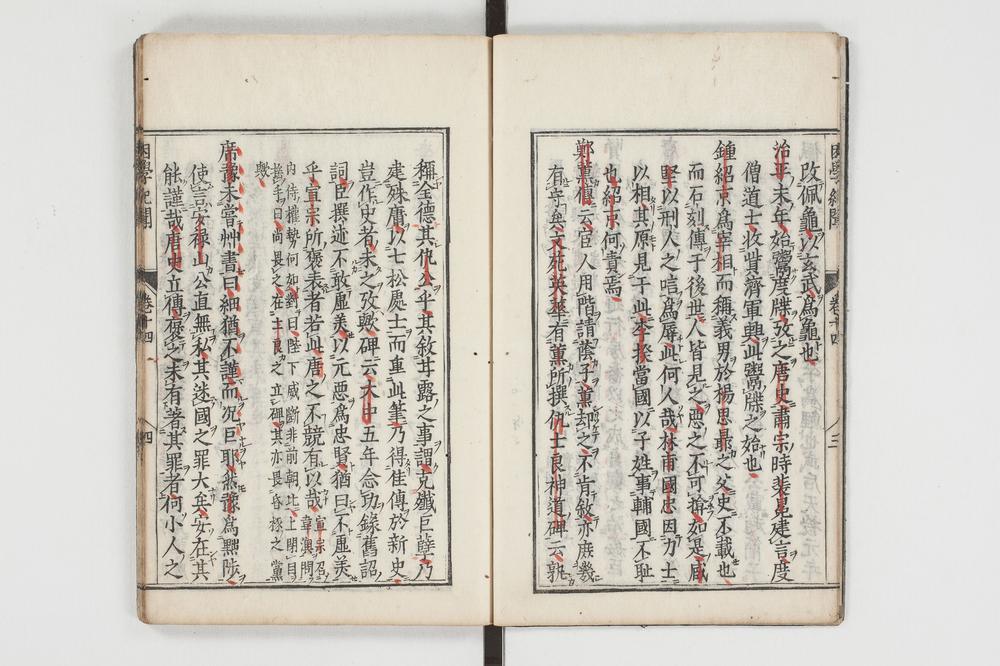 改佩龜以玄武爲龜也
治平末年始鬻度牒攷之唐史肅宗時裴冕建言度
僧道士收貲濟軍興此鬻牒之始也
鍾紹京爲宰相而稱義男於楊思勗之父史不載也
而石刻傳于後世人皆見之惡之不可揜如是臧
堅以刑人之唁爲辱此何人哉林甫國忠因力士
以相其原見于此李揆當國以子姓事輔國不恥
也紹京何責焉
鄭薰傳云宦人用階請蔭子薰却之不肯敘亦庶幾
有守矣文苑英華有薰所撰仇士良神道碑云孰
稱全德其仇公乎其敘甘露之事謂克殲巨孽乃
建殊庸以七松處士而車此筆乃得佳傳於新史
豈作史者未之攷歟碑云大中五年念功錄舊詔
詞臣撰述不敢虛美以元惡爲忠賢猶曰不虛美
乎宣宗所褒表者若此唐之不競有以哉宣宗召韋澳問
內侍權勢何如對曰陛下威斷非前朝比上閉目
搖手曰尚畏之在士良之立碑其亦畏昏椓之黨
歟
席豫未嘗艸書曰細猶不謹而況巨耶然豫爲黜陟
使言安祿山公直無私其迷國之罪大矣安在其
能謹哉唐史立傳褒之未有著其罪者何小人之
困學紀聞 卷十四 三
困學紀聞 卷十四 四